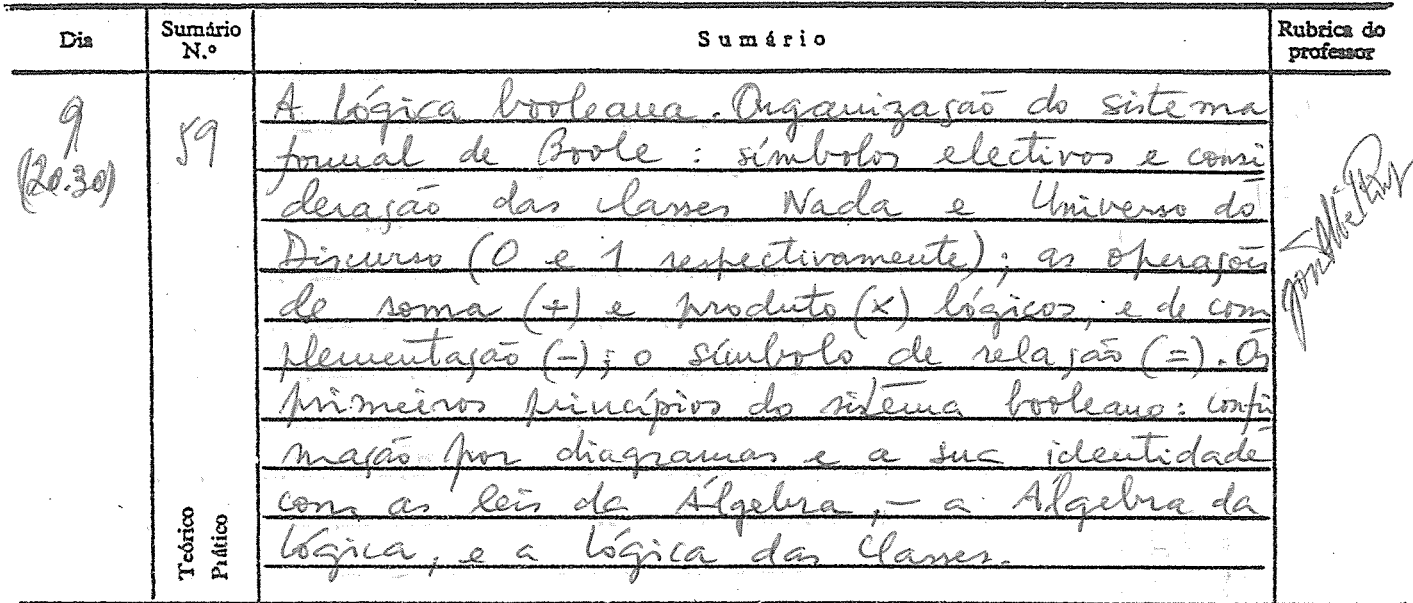 Dia
Sumário N.º
Sumário
Rubrica do professor
9
(20.30)
59
A lógica booleana. Organização do sistema
formal de Boole : símbolos electivos e consi
deração das classes Nada e Universo do
Discurso (0 e 1 respectivamente); as operações
de soma (+) e produto (×) lógicos, e de com
plementação (-); o símbolo de relação (=). Os
primeiros princípios do sistema booleano: confir
mação por diagramas e a sua identidade
com as leis da Álgebra, – a Álgebra da
lógica, e a lógica das Classes.
Teórico
Prático